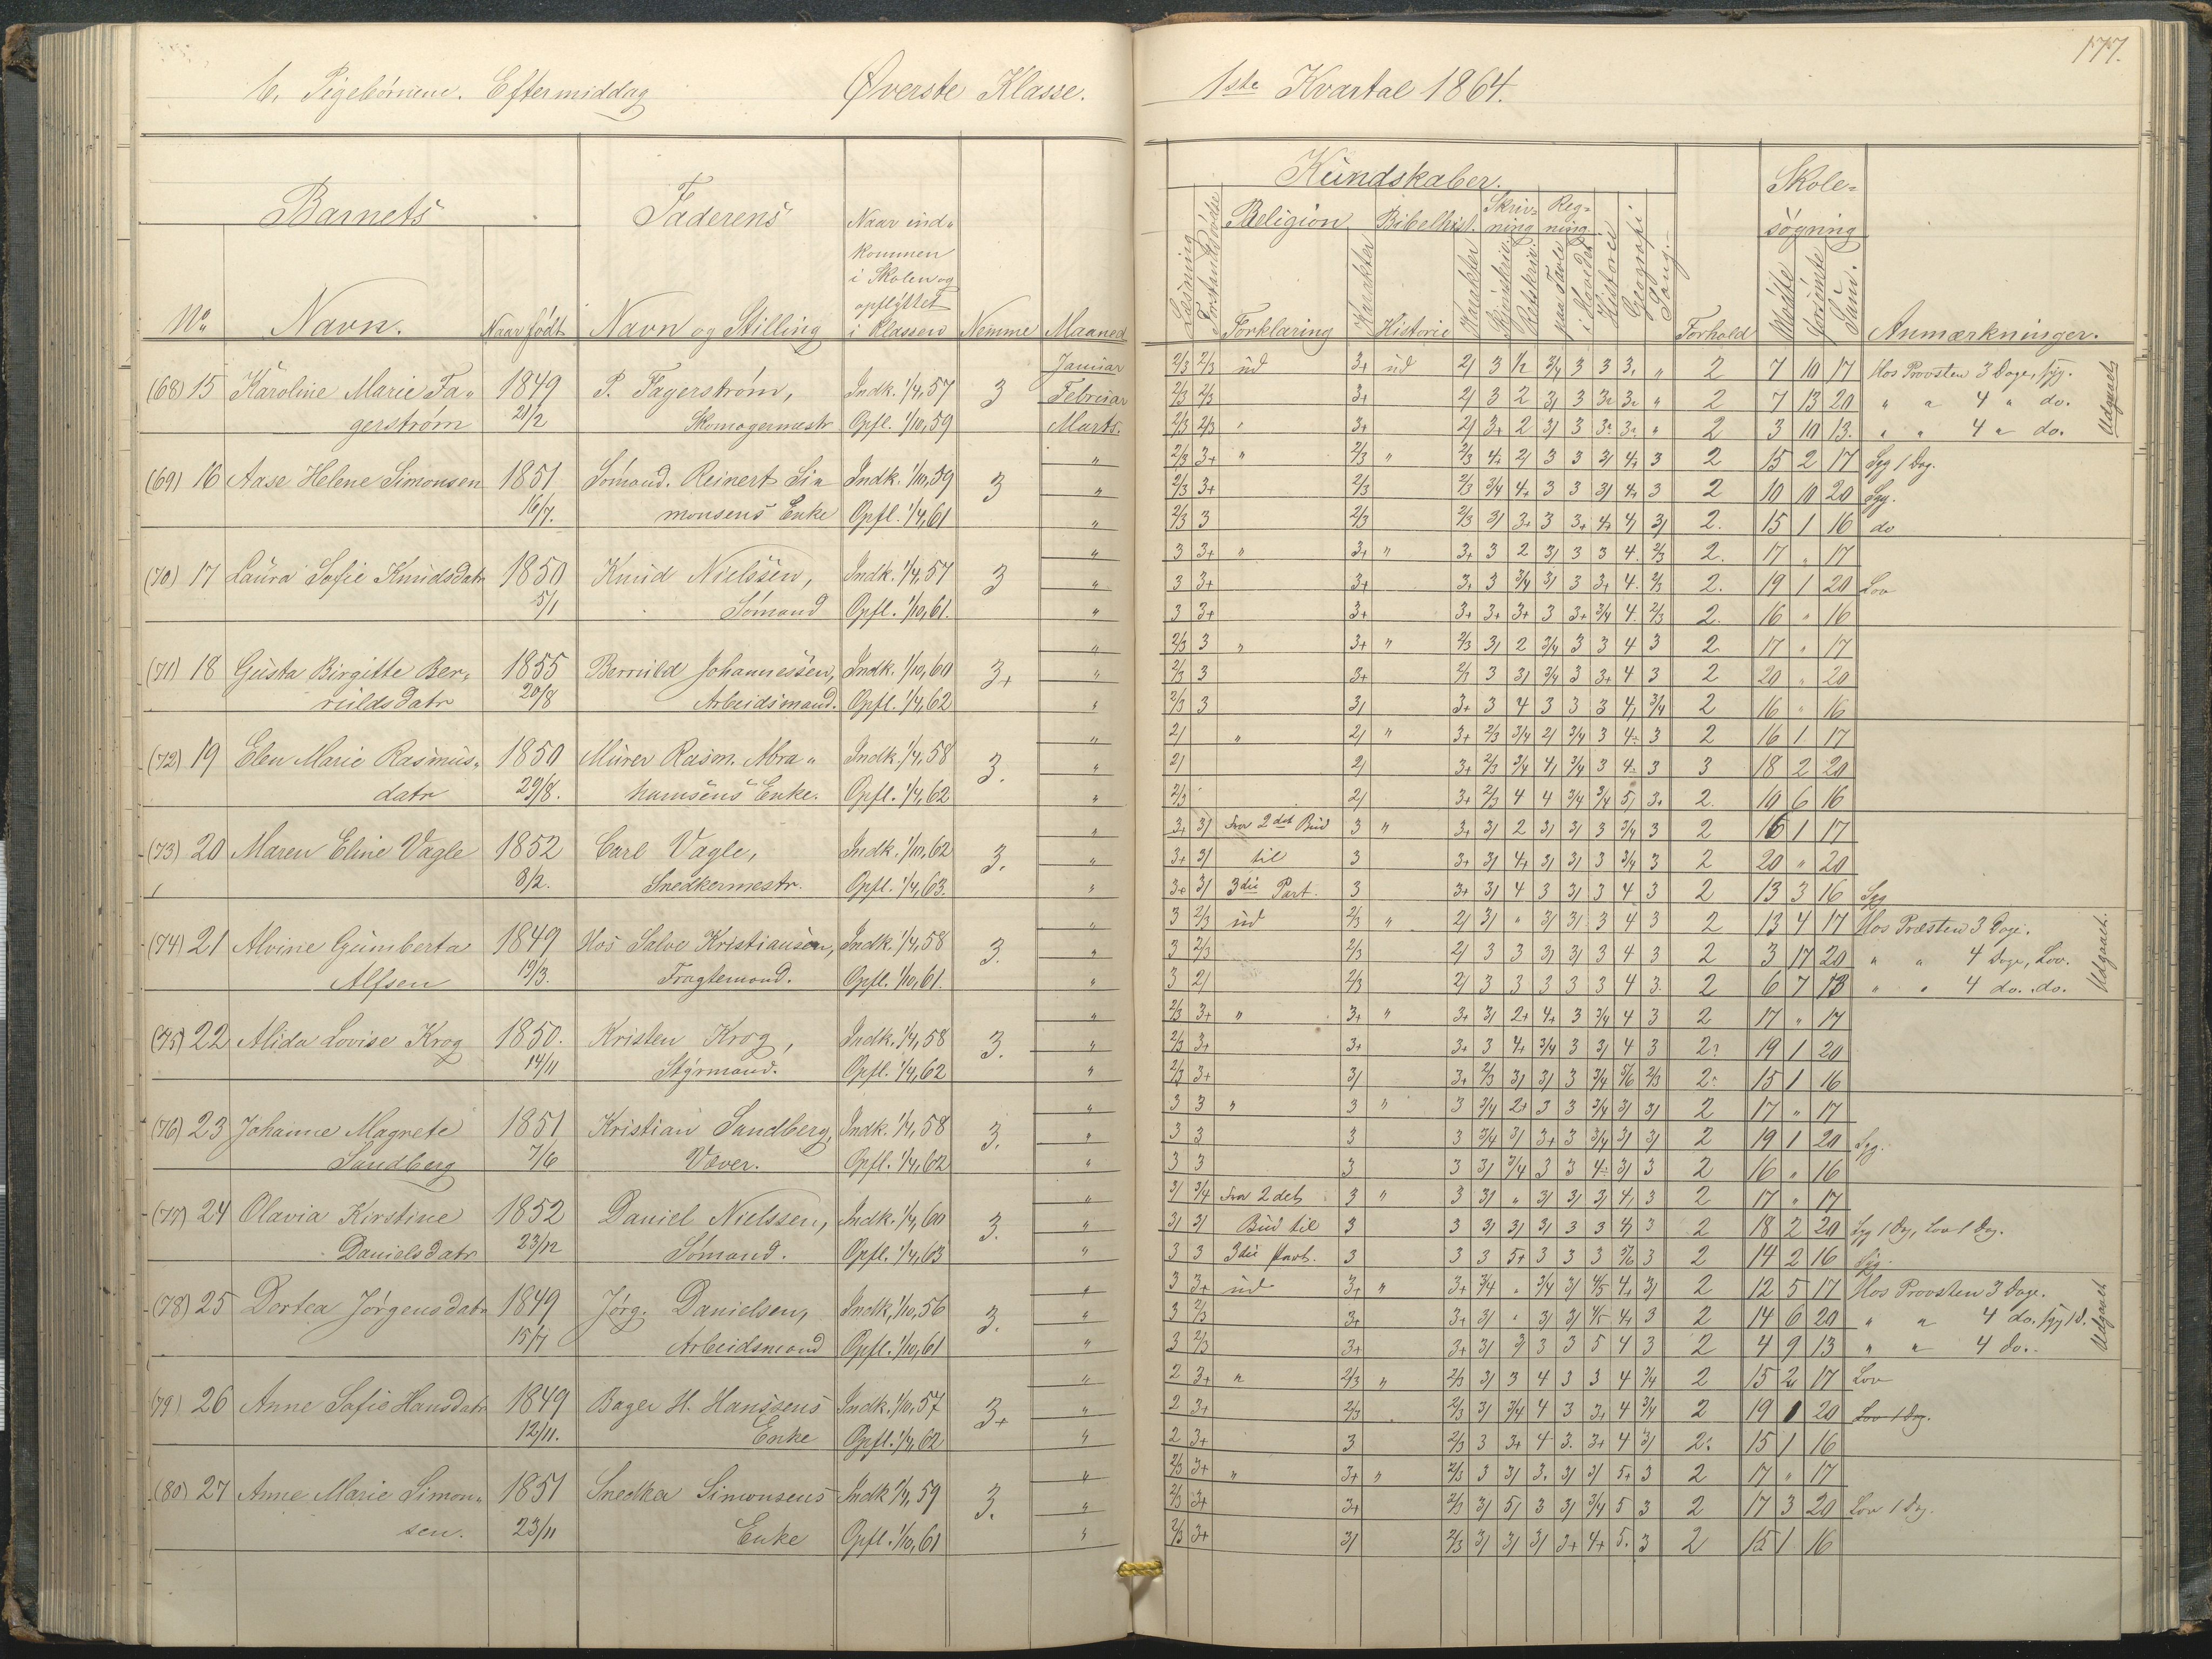 b, Pigebörnene. Eftermiddag Øverste Klasse.
Barnets Faderens Naar ind-
kommen
i Skolen og
opflyttet
No. Navn. Naar født Navn og Stilling i Klassen Nemme Maaned
Januar
(68) 15 Karoline Marie Fa- 1849 P. Fagerström, Indk. 1/4, 57 3 Februar
gerström 21/2 Skomagermestr Opfl. 1/10, 59 Marts.
(69) 16 Aase Helene Simonsen 1851 Sömand. Reinert Si- Indk. 1/10, 59 3 "
16/7. monsens Enke Opfl. 1/4, 61 "
(70) 17 Laura Sofie Knudsdatr 1850 Knud Nielssen, Indk. 1/4, 57 3 "
5/1 Sömand Opfl. 1/10, 61. "
(71) 18 Gusta Birgitte Ber- 1855 Berruld Johannessen, Indk. 1/10, 60 3+ "
ruldsdatr 20/8 Arbeidsmand. Opfl. 1/4, 62 "
(72) 19 Elen Marie Rasmus- 1850 Murer Rasm. Abra- Indk. 1/4, 58 3. "
datr 29/8. hamsens Enke. Opfl. 1/4, 62 "
(73) 20 Maren Eline Vagle 1852 Carl Vagle, Indk. 1/10, 62 3. "
8/2. Snedkermestr. Opfl. 1/4, 63. "
(74) 21 Alvine Gumberta 1849 Hos Salve Kristiansen, Indk. 1/4, 58 3. "
Alfsen 19/3. Fragtemand. Opfl. 1/10, 61. "
(75) 22 Alida Lovise Krog 1850. Kristen Krog, Indk. 1/4, 58 3. "
14/11 Styrmand. Opfl. 1/4, 62 "
(76) 23 Johanne Magrete 1851 Kristian Sundberg, Indk. 1/4, 58 3. "
Sundberg 7/6 Væver. Opfl. 1/4, 62 "
(77) 24 Olavia Kirstine 1852 Daniel Nielssen, Indk. 1/4, 60 3. "
Danielsdatr 23/12 Sömand. Opfl. 1/4, 63 "
(78) 25 Dortea Jörgensdatr 1849 Jörg. Danielsen, Indk. 1/10, 56 3. "
15/7 Arbeidsmand Opfl. 1/10, 61 "
(79) 26 Anne Sofie Hansdatr 1849 Bager H. Hanssens Indk. 1/10, 57 3+ "
12/11. Enke Opfl. 1/4, 62 "
(80) 27 Anne Marie Simon- 1851 Snedker Simonsens Indk. 1/4, 59 3. "
sen. 23/11 Enke Opfl. 1/10, 61 "
177.
1ste Kvartal 1864.
Kundskaber. Skole-
søgning
Religion Bibelhist. Skriv-ning Reg-ning
Læsning Forstandsøvelse Forklaring Karakter Historie Karakter Skjønskriv. Retskriv. paa Tavle i Hovedet Historie Geografi Sang. Forhold Mødte Forsømte Sum. Anmærkninger.
2/3 2/3 ud 3+ ud 2/ 3 1/2 3/4 3 3 3. " 2 7 10 17 Hos Provsten 3 Dage, syg.
2/3 2/3 3+ 2/ 3 2 3/ 3 " 2 7 13 20 " " 4 " do.
2/3 2/3 3+ 2/ 3+ 2 3/ 3 " 2 3 10 13. " " 4 " do.
Udgaaet
2/3 3+ " 2/3 " 2/3 4+ 2/ 3 3 3/ 4+ 3 2 15 2 17 Syg 1 Dag.
2/3 3+ 2/3 2/3 3/4 4+ 3 3 3/ 4+ 3 2 10 10 20 Syg.
2/3 3 2/3 2/3 3/ 3+ 3 3+ 4+ 4/ 3/ 2. 15 1 16 do
3 3+ " 3+ " 3+ 3 2 3/ 3 3 4. 2/3 2. 17 " 17
3 3+ 3+ 3+ 3 3/4 3/ 3 3+ 4. 2/3 2. 19 1 20 Lov
3 3+ 3+ 3+ 3+ 3+ 3 3+ 3/4 4. 2/3 2. 16 " 16
2/3 3 " 3+ " 2/3 3/ 2 3/4 3 3 4 3 2. 17 " 17
2/3 3 3+ 2/3 3 3/ 3/4 3 3+ 4 3 2 20 " 20
2/3 3 3/ 3+ 3 4 3 3 3 4/ 3/4 2 16 " 16
2/ " 2/ " 3+ 2/3 3/4 2/ 3/4 3 4- 3 2 16 1 17
2/ 2/ 3+ 2/3 3/4 4/ 3/4 3 4- 3 3 18 2 20
2/3 2/ 3+ 2/3 4 4 3/4 3/4 5/ 3+ 2. 10 6 16
3+ 3/ Fra 2det Bud 3 " 3+ 3/ 2 3/ 3/ 3 3/4 3 2 16 1 17
3+ 3/ til 3 3+ 3/ 4+ 3/ 3/ 3 3/4 3 2 20 " 20
3+ 3/ 3die Part. 3 3+ 3/ 4 3 3/ 3 4 3 2 13 3 16 Syg
3 2/3 ud 2/3 " 2/ 3/ " 3/ 3/ 3 4 3 2 13 4 17 Hos Præsten 3 Dage.
3 2/3 2/3 2/ 3 3 3/ 3/ 3 4 3 2 3 17 20 " " 4 Dage, Lov.
3 2/ 2/3 2/ 3 3 3 3 3 4 3 2 6 7 13 " " 4 do. do.
Udgaaet.
2/3 3+ " 3+ " 3+ 3/ 2+ 4+ 3 3/4 4 3 2 17 " 17
2/3 3+ 3+ 3+ 3 4+ 3/4 3 3/ 4 3 2? 19 1 20
2/3 3+ 3/ 3+ 2/3 3/ 3/ 3 3/4 5/6 2/3 2- 15 1 16
3 3 " 3 " 3 3/4 2+ 3 3 3/4 3/ 3/ 2 17 " 17
3 3 3 3 3/4 3/ 3+ 3 3/4 3/ 3/ 2 19 1 20 Syg.
3 3 3 3 3/ 3/4 3 3 4- 3/ 3 2 16 " 16
3/ 3/4 Fra 2det 3 " 3 3/ " 3/ 3/ 3/ 4/ 3 2 17 " 17
3/ 3/ Bud til 3 3 3/ 3/ 3/ 3 3 4/ 3 2 18 2 20 Syg 1 Dag, Lov 1 Dag.
3 3 3die Part. 3 3 3 5+ 3 3 3 5/6 3 2 14 2 16 Syg.
3 3+ ud 3+ " 3+ 3/4 " 3/4 3/ 4/5 4+ 3/ 2 12 5 17 Hos Provsten 3 Dage.
3 2/3 3+ 3+ 3/ " 3/ 3/ 4/5 4+ 3 2 14 6 20 " " 4 do. syg 1 d.
3 2/3 3+ 3+ 3/ 3/ 3 3 5 4 3 2 4 9 13 " " 4 do..
Udgaaet
2 3+ " 2/3 " 2/3 3/ 3 4 3 3 4 3/4 2 15 2 17 Lov
2 3+ 2/3 2/3 3/ 3/4 4 3 3+ 4 3/4 2 19 1 20 Lov 1 Dag.
2 3+ 3 2/3 3 3+ 4 3. 3+ 4 3/ 2. 15 1 16
2/3 3+ " 3+ " 2/3 3 3/ 3. 3/ 3/ 5+ 3 2 17 " 17
2/3 3+ 3+ 2/3 3/ 5/ 3 3/ 3/4 5 3 2 17 3 20 Lov 1 Dag.
2/3 3+ 3/ 2/3 3/ 3/ 3/ 3+ 4+ 5. 3 2 15 1 16